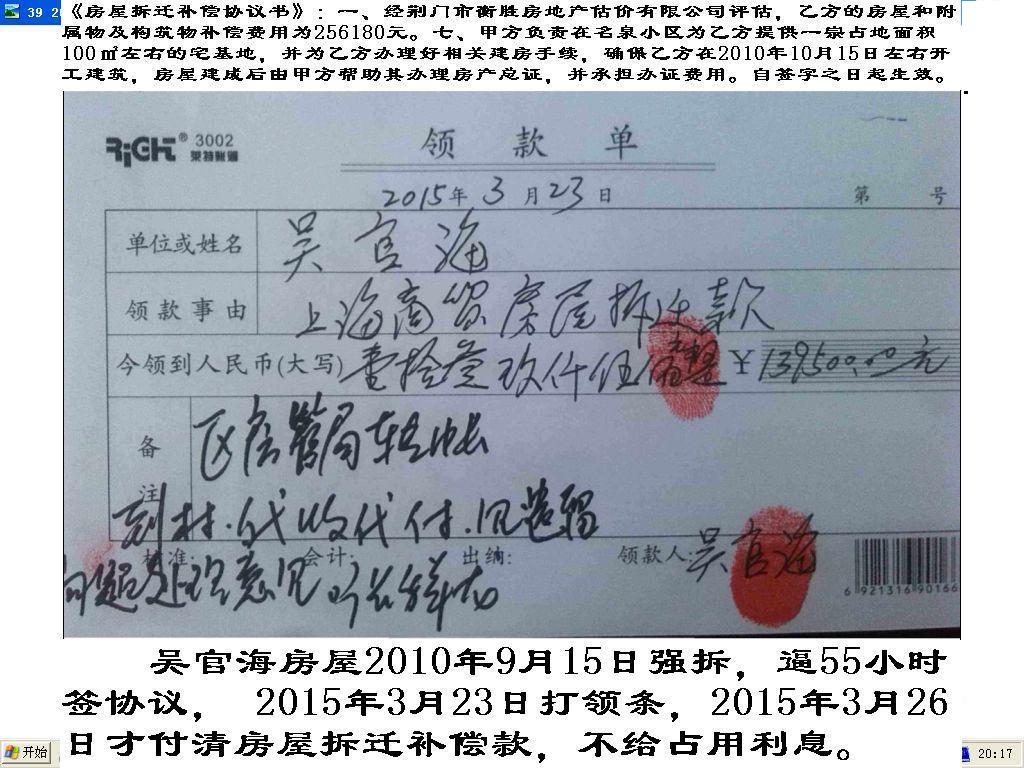 39 2
《房屋拆迁补偿协议书》：一、经荆门市衡胜房地产估价有限公司评估，乙方的房屋和附
属物及构筑物补偿费用为256180元。七、甲方负责在名泉小区为乙方提供一宗占地面积
100㎡左右的宅基地，并为乙方办理好相关建房手续，确保乙方在2010年10月15日左右开
工建筑，房屋建成后由甲方帮助其办理房产总证，并承担办证费用。自签字之日起生效。
RiGHT® 3002
莱特账簿
领款单
2015年3月23日
第 号
单位或姓名 吴官海
领款事由 上海商贸房屋拆迁款
今领到人民币(大写) 壹拾叁玖仟伍佰整 ￥139500.00元
备 区房管局转帐
注 村.代收代付.见
核准: 会计: 出纳: 领款人: 吴官海
问题处理意见
6 921316 90166
吴官海房屋2010年9月15日强拆，逼55小时
签协议， 2015年3月23日打领条，2015年3月26
日才付清房屋拆迁补偿款，不给占用利息。
开始
20:17